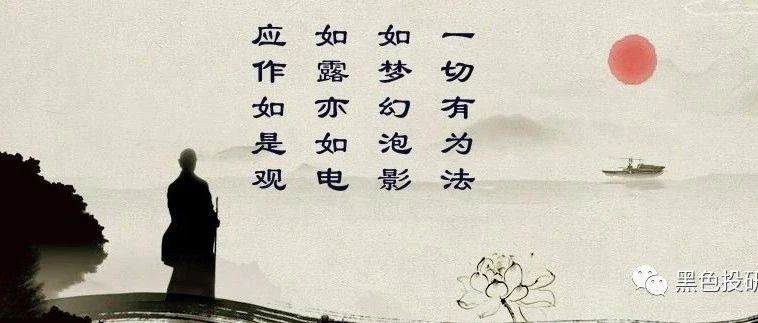 一切有为法
如梦幻泡影
如露亦如电
应作如是观
黑色投研